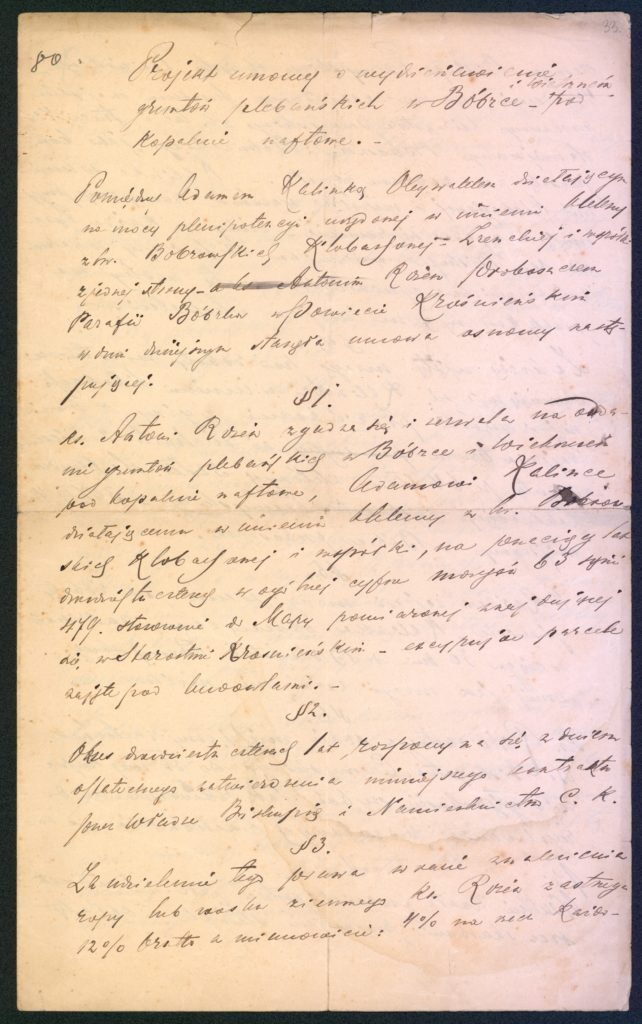 80.
33.
Projekt umowy o wydzierżawienie
gruntów plebańskich w Bóbrce i Wietrznie – pod
kopalnie naftowe. –
Pomiędzy Adamem Kalinką Obywatelem działającym
na mocy plenipotencyi wydanej w imieniu Heleny
z hr. Bobrowskich Klobassowej – Zrenckiej i wspólki
z jednej strony – a ks. Antonim Rozem Proboszczem
Parafii Bóbrka w Powiecie Krośnieńskim
w dniu dzisiejszym stanęła umowa osnowy nastę-
pującej.
§ 1.
ks. Antoni Roza zgadza się i zezwala na odda-
nie gruntów plebańskich w Bóbrce i
pod kopalnie naftowe, Adamowi Kalince
działającemu w imieniu Heleny z hr. Bobrow-
skich Klobassowej i wspólki, na przeciąg lat
dwudziestu czterech w ogólnej cyfrze morgów 63 sążni
479. stosownie do Mapy pomiarowej znajdującej
się w Starostwie Krośnieńskim – excypując parcele
zajęte pod budowlami. –
§ 2.
Okres dwudziestu czterech lat rozpoczyna się z dniem
ostatecznego zatwierdzenia niniejszego kontraktu
przez Władze Biskupią i Namiestnictwo C. K.
§ 3.
Za udzielenie tego prawa w razie znalezienia
ropy lub wosku ziemnego ks. Roza zastrzega
12% brutto a mianowicie: 4% na rzecz każdo-